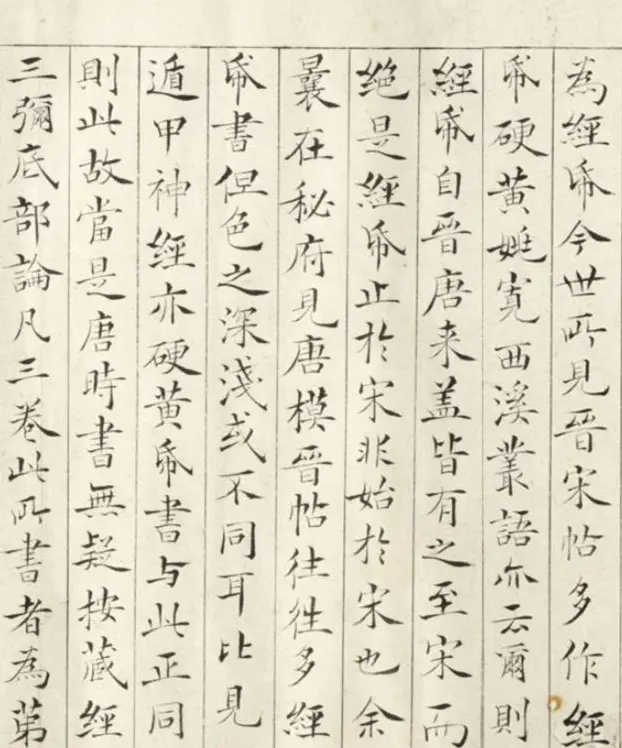 為經帋今世所見晉宋帖多作經
帋硬黃姚寬西溪叢語亦云爾則
經帋自晉唐来盖皆有之至宋而
絕是經帋止於宋非始於宋也余
曩在秘府見唐模晉帖往往多經
帋書但色之深淺或不同耳比見
遁甲神經亦硬黃帋書与此正同
則此故當是唐時書無疑按藏經
三彌底部論凡三卷此所書者為苐